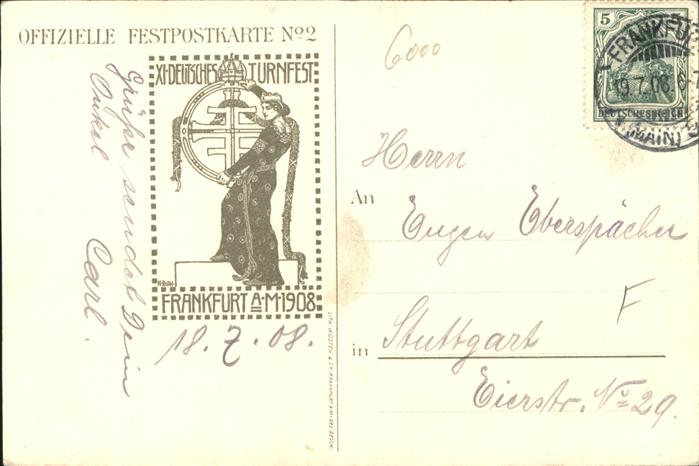 OFFIZIELLE FESTPOSTKARTE No 2
XI·DEUTSCHES TURNFEST
FRANKFURT A·M·1908
Grüße sendet Dein
Onkel
Carl.
18.7.08.
6000
5
DEUTSCHES REICH
FRANKFU
19.7.08.
(MAIN)
Herrn
An
Eugen Eberspächer
F
in Stuttgart
Eierstr. No 29.